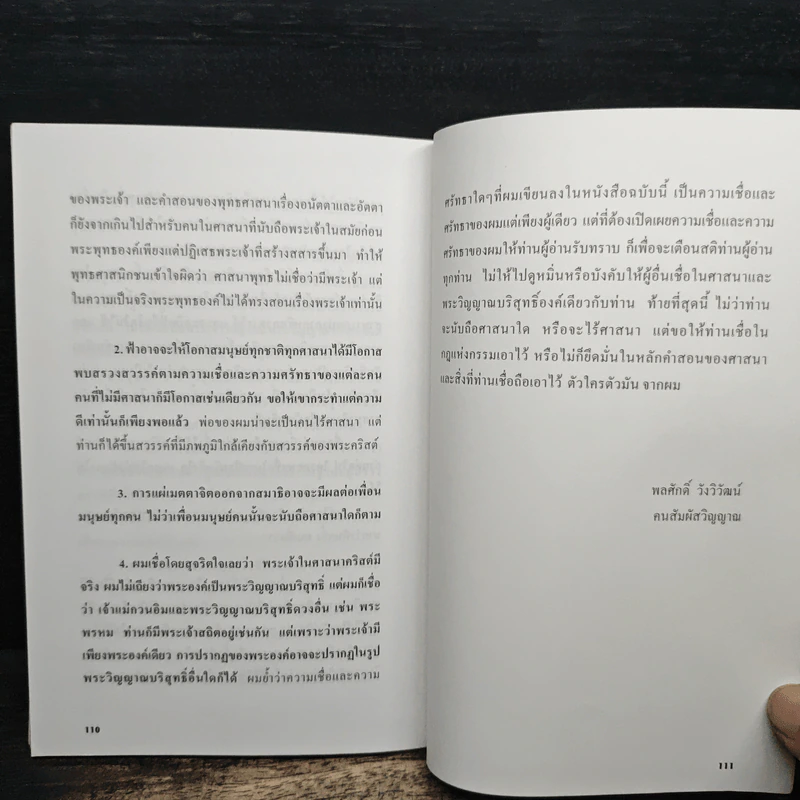 ของพระเจ้า และคำสอนของพุทธศาสนาเรื่องอนัตตาและอัตตา
ก็ยังจากเกินไปสำหรับคนในศาสนาที่นับถือพระเจ้าในสมัยก่อน
พระพุทธองค์เพียงแต่ปฏิเสธพระเจ้าที่สร้างสสารขึ้นมา ทำให้
พุทธศาสนิกชนเข้าใจผิดว่า ศาสนาพุทธไม่เชื่อว่ามีพระเจ้า แต่
ในความเป็นจริงพระพุทธองค์ไม่ได้ทรงสอนเรื่องพระเจ้าเท่านั้น
2. ฟ้าอาจจะให้โอกาสมนุษย์ทุกชาติทุกศาสนาได้มีโอกาส
พบสรวงสวรรค์ตามความเชื่อและความศรัทธาของแต่ละคน
คนที่ไม่มีศาสนาก็มีโอกาสเช่นเดียวกัน ขอให้เขากระทำแต่ความ
ดีเท่านั้นก็เพียงพอแล้ว พ่อของผมน่าจะเป็นคนไร้ศาสนา แต่
ท่านก็ได้ขึ้นสวรรค์ที่มีภพภูมิใกล้เคียงกับสวรรค์ของพระคริสต์
3. การแผ่เมตตาจิตออกจากสมาธิอาจจะมีผลต่อเพื่อน
มนุษย์ทุกคน ไม่ว่าเพื่อนมนุษย์คนนั้นจะนับถือศาสนาใดก็ตาม
4. ผมเชื่อโดยสุจริตใจเลยว่า พระเจ้าในศาสนาคริสต์มี
จริง ผมไม่เถียงว่าพระองค์เป็นพระวิญญาณบริสุทธิ์ แต่ผมก็เชื่อ
ว่า เจ้าแม่กวนอิมและพระวิญญาณบริสุทธิ์ดวงอื่น เช่น พระ
พรหม ท่านก็มีพระเจ้าสถิตอยู่เช่นกัน แต่เพราะว่าพระเจ้ามี
เพียงพระองค์เดียว การปรากฏของพระองค์อาจจะปรากฏในรูป
พระวิญญาณบริสุทธิ์อื่นใดก็ได้ ผมย้ำว่าความเชื่อและความ
110
ศรัทธาใดๆที่ผมเขียนลงในหนังสือฉบับนี้ เป็นความเชื่อและ
ศรัทธาของผมแต่เพียงผู้เดียว แต่ที่ต้องเปิดเผยความเชื่อและความ
ศรัทธาของผมให้ท่านผู้อ่านรับทราบ ก็เพื่อจะเตือนสติท่านผู้อ่าน
ทุกท่าน ไม่ให้ไปดูหมิ่นหรือบังคับให้ผู้อื่นเชื่อในศาสนาและ
พระวิญญาณบริสุทธิ์องค์เดียวกับท่าน ท้ายที่สุดนี้ ไม่ว่าท่าน
จะนับถือศาสนาใด หรือจะไร้ศาสนา แต่ขอให้ท่านเชื่อใน
กฎแห่งกรรมเอาไว้ หรือไม่ก็ยึดมั่นในหลักคำสอนของศาสนา
และสิ่งที่ท่านเชื่อถือเอาไว้ ตัวใครตัวมัน จากผม
พลศักดิ์ วังวิวัฒน์
คนสัมผัสวิญญาณ
111